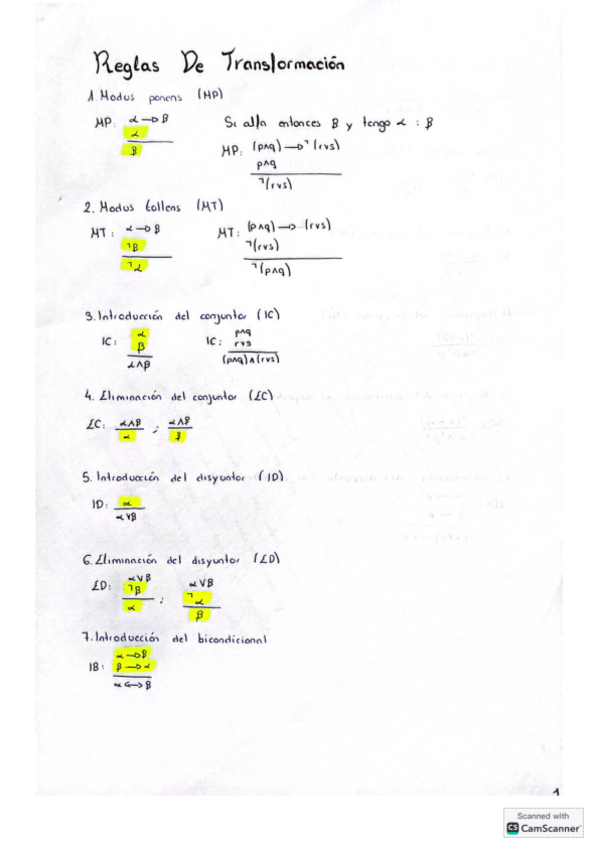 Reglas De Transformación
1. Modus ponens (MP)
MP: α → β
α
β
Si alfa entonces β y tengo α : β
MP: (p∧q) → ¬(r∨s)
p∧q
¬(r∨s)
2. Modus tollens (MT)
MT: α → β
¬β
¬α
MT: (p∧q) → (r∨s)
¬(r∨s)
¬(p∧q)
3. Introducción del conjuntor (IC)
IC: α
β
α∧β
IC: p∧q
r∨s
(p∧q)∧(r∨s)
4. Eliminación del conjuntor (EC)
EC: α∧β ; α∧β
α β
5. Introducción del disyuntor (ID)
ID: α
α∨β
6. Eliminación del disyuntor (ED)
ED: α∨β ; α∨β
¬β ¬α
α β
7. Introducción del bicondicional
IB: α → β
β → α
α ↔ β
1
Scanned with
CS CamScanner